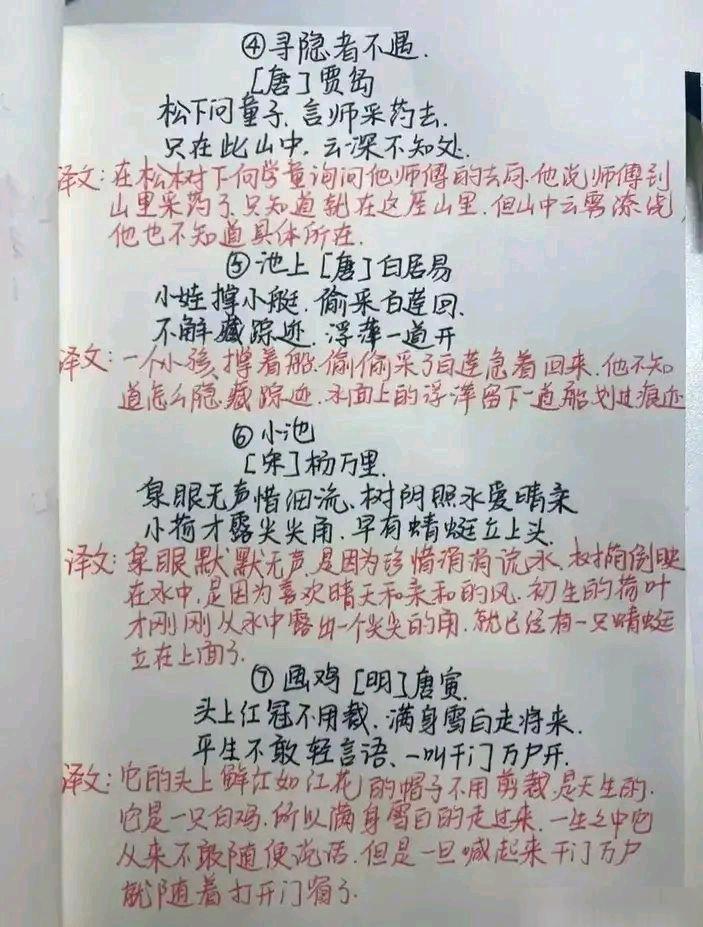 ④寻隐者不遇.
[唐]贾岛
松下问童子,言师采药去.
只在此山中,云深不知处.
译文:在松树下向学童询问他师傅的去向.他说师傅到
山里采药了.只知道就在这座山里.但山中云雾缭绕,
他也不知道具体所在.
⑤池上[唐]白居易
小娃撑小艇.偷采白莲回.
不解藏踪迹.浮萍一道开
译文:一个小孩撑着船.偷偷采了白莲急着回来.他不知
道怎么隐藏踪迹.水面上的浮萍留下一道船划过痕迹
⑥小池
[宋]杨万里.
泉眼无声惜细流、树阴照水爱晴柔
小荷才露尖尖角.早有蜻蜓立上头.
译文:泉眼默默无声.是因为珍惜涓涓流水.树荫倒映
在水中.是因为喜欢晴天和柔和的风.初生的荷叶
才刚刚从水中露出一个尖尖的角.就已经有一只蜻蜓
立在上面了.
⑦画鸡[明]唐寅.
头上红冠不用裁.满身雪白走将来.
平生不敢轻言语、一叫千门万户开.
译文:它的头上鲜红如红花的帽子不用剪裁.是天生的.
它是一只白鸡.所以满身雪白的走过来.一生之中它
从来不敢随便说话.但是一旦喊起来千门万户
就随着打开门窗了.